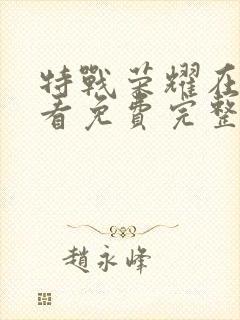 特戰榮耀在
看免費完整
趙永峰